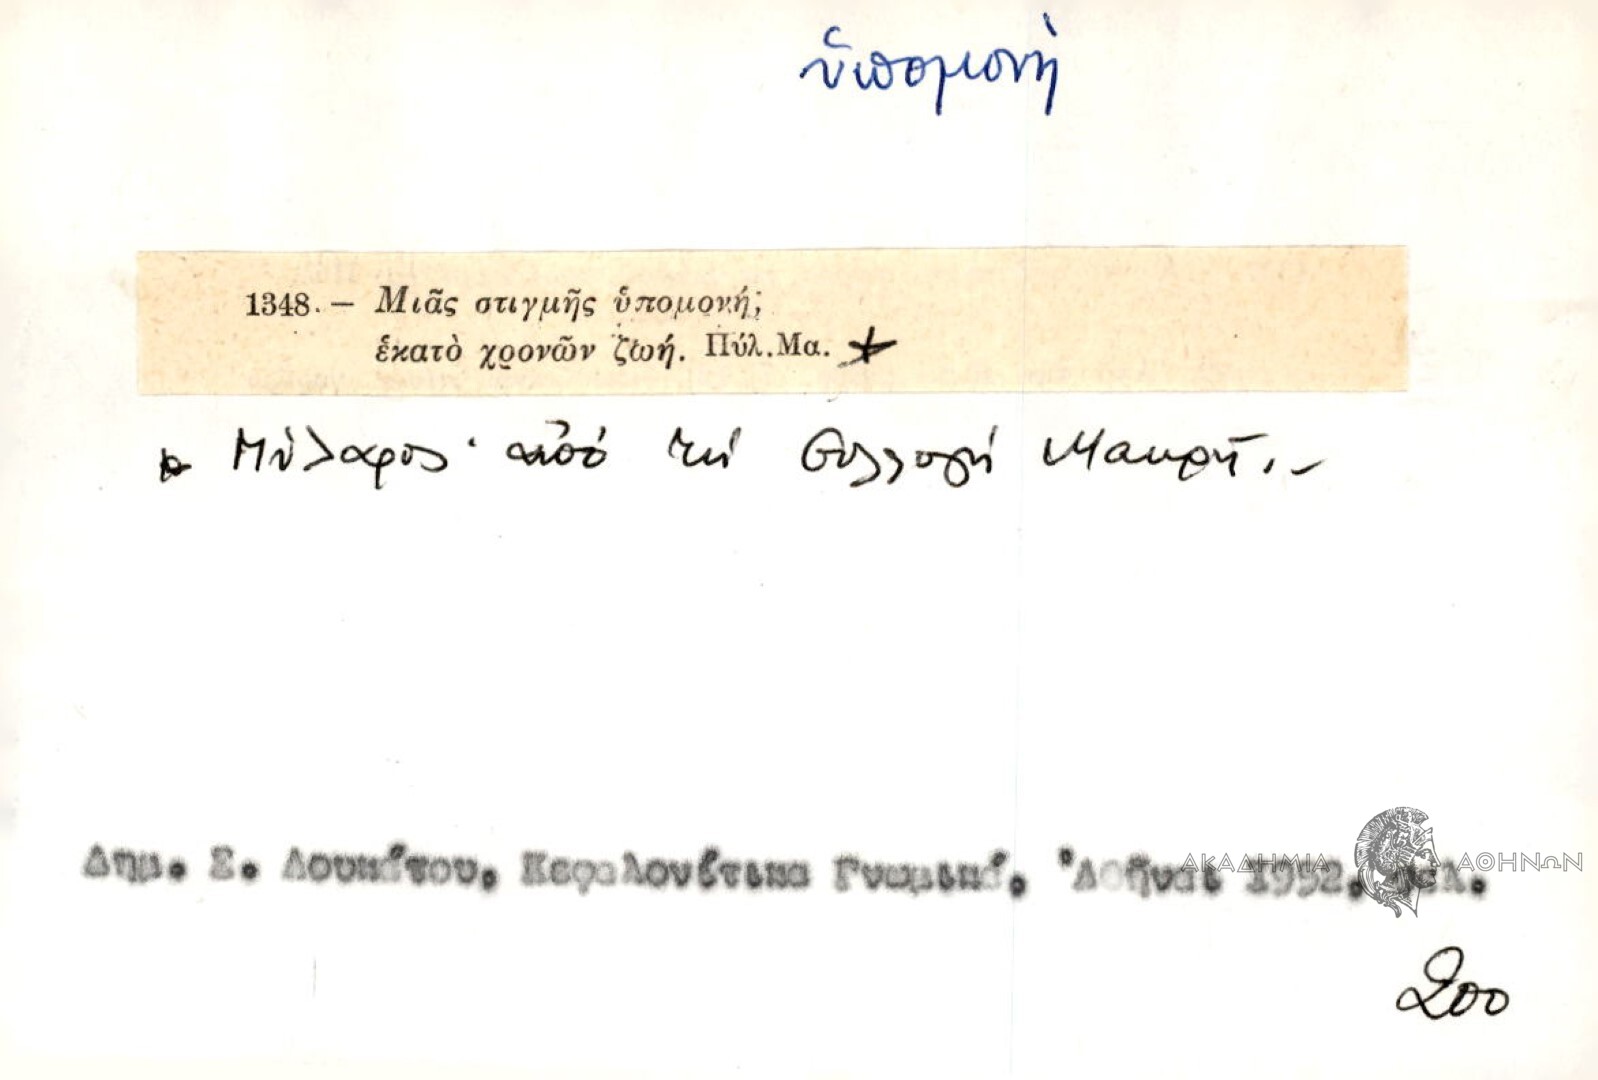 ὑπομονή
1348. — Μιᾶς στιγμῆς ὑπομονή;
ἑκατὸ χρονῶν ζωή. Πύλ.Μα. *
* Πύλαρος· ἀπό τή Συλλογή Μακρῆ.-
Δημ. Σ. Λουκάτου, Κεφαλονίτικα Γνωμικά, Ἀθῆναι 1952, σελ.
ΑΚΑΔΗΜΙΑ ΑΘΗΝΩΝ
200